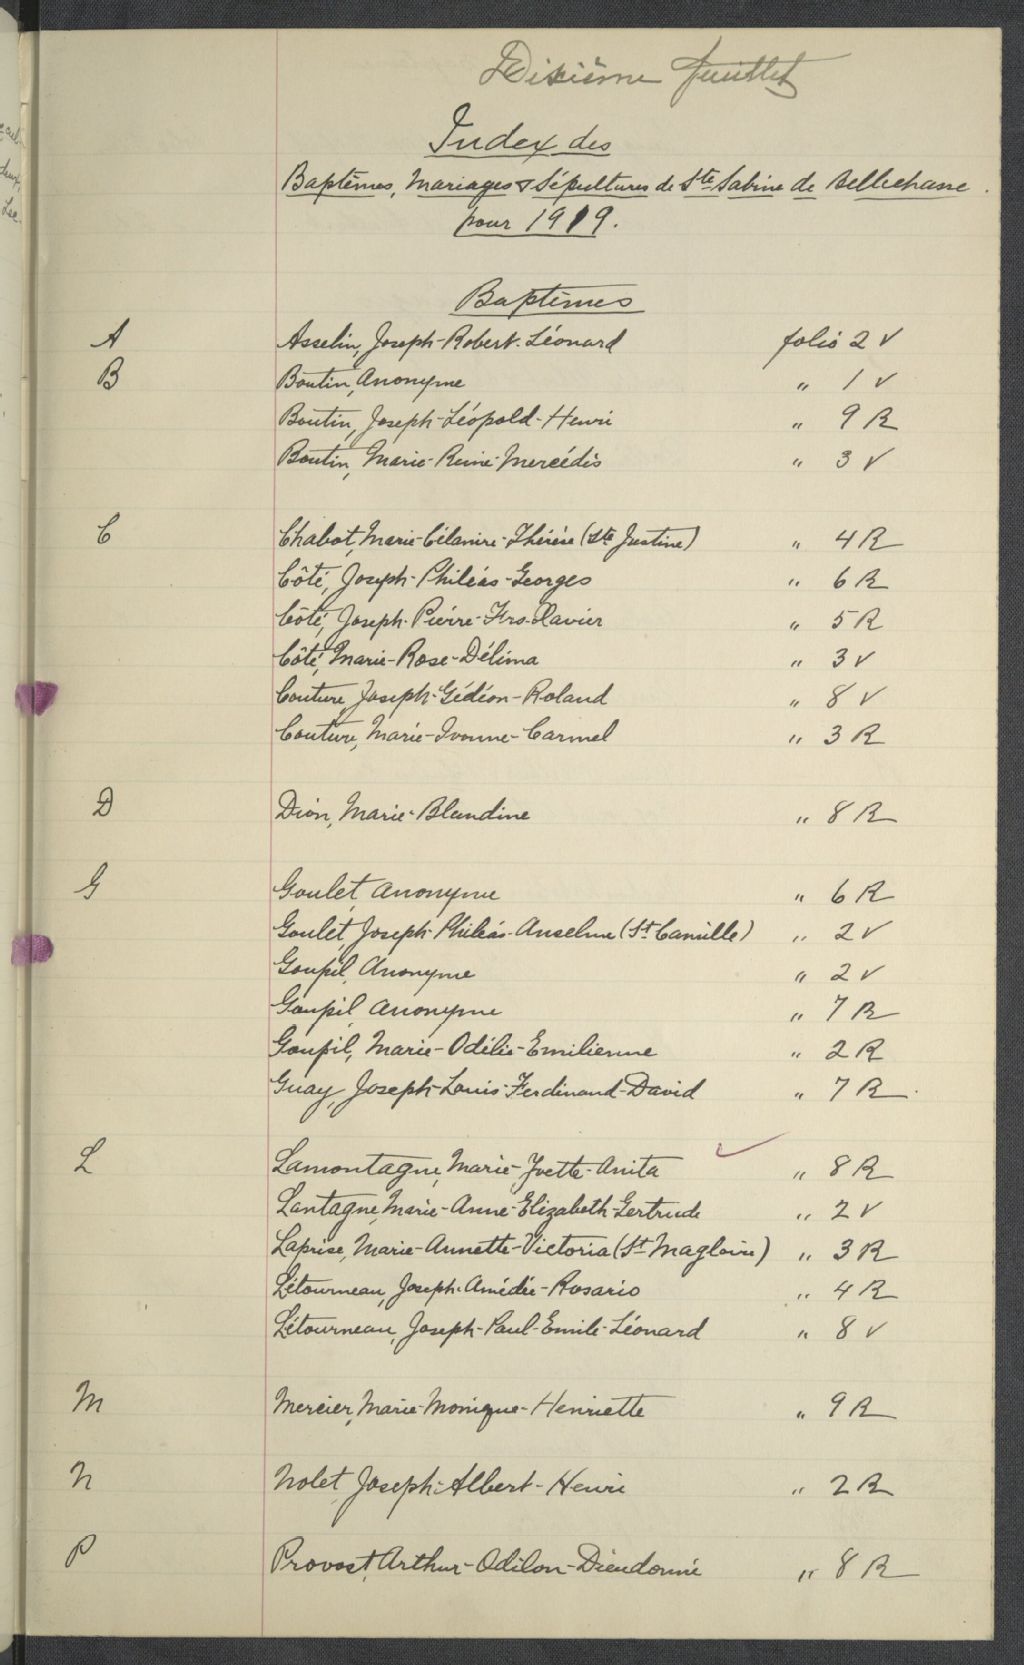 Dixième feuillet
Index des
Baptêmes, Mariages & Sépultures de Ste Sabine de Bellechasse.
pour 1919.
Baptêmes
A Asselin, Joseph-Robert-Léonard folio 2 V
B Boutin, Anonyme " 1 V
Boutin, Joseph-Léopold-Henri " 9 R
Boutin, Marie-Reine-Mercédis " 3 V
C Chabot, Marie-Célanire-Thérèse (Ste Justine) " 4 R
Côté, Joseph-Philéas-Georges " 6 R
Côté, Joseph-Pierre-Frs-Xavier " 5 R
Côté, Marie-Rose-Délima " 3 V
Couture, Joseph-Gédéon-Roland " 8 V
Couture, Marie-Ivonne-Carmel " 3 R
D Dion, Marie-Blandine " 8 R
G Goulet, Anonyme " 6 R
Goulet, Joseph-Philéas-Anselme (St Camille) " 2 V
Goupil, Anonyme " 2 V
Goupil, Anonyme " 7 R
Goupil, Marie-Odélie-Emilienne " 2 R
Guay, Joseph-Louis-Ferdinand-David " 7 R
L Lamontagne, Marie-Yvette-Anita " 8 R
Lantagne, Marie-Anne-Elizabeth-Gertrude " 2 V
Laprise, Marie-Annette-Victoria (St Magloire) " 3 R
Létourneau, Joseph-Amédée-Rosario " 4 R
Létourneau, Joseph-Paul-Emile-Léonard " 8 V
M Mercier, Marie-Monique-Henriette " 9 R
N Nolet, Joseph-Albert-Henri " 2 R
P Provost, Arthur-Odilon-Dieudonné " 8 R